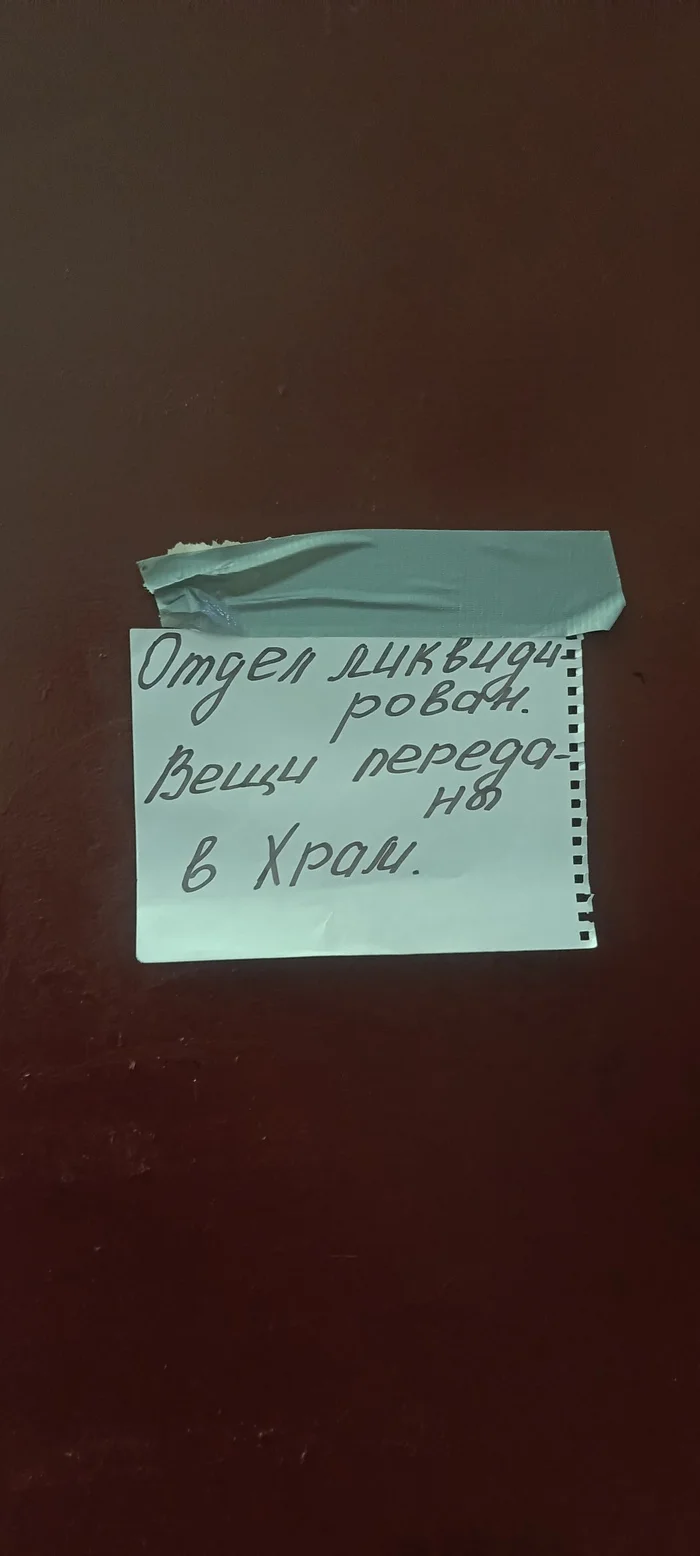 Отдел ликвиди-
рован.
Вещи переда-
ны
в Храм.